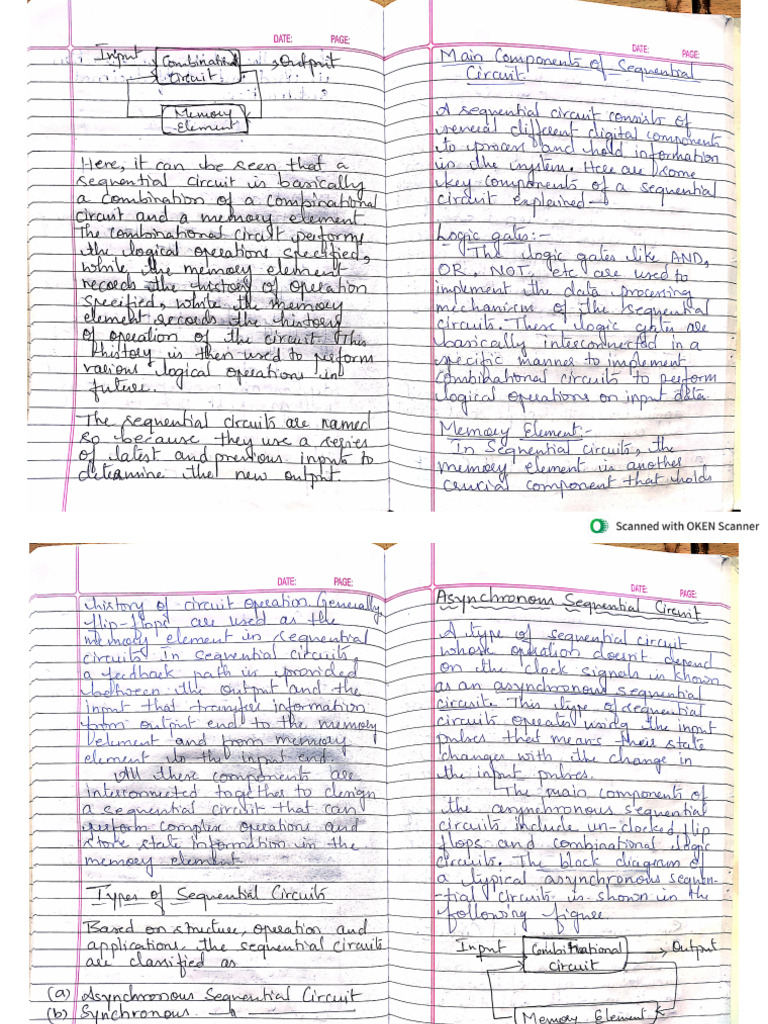 DATE: PAGE:
Input Combinational Output
Circuit
Memory
Element
Here, it can be seen that a
sequential circuit is basically
a combination of a combinational
circuit and a memory element
The combinational circuit performs
the logical operations specified,
while the memory element
records the history of operation
specified, while the memory
element records the history
of operation of the circuit. This
history is then used to perform
various logical operations in
future.
The sequential circuits are named
so because they use a series
of latest and previous inputs to
determine the new output
DATE: PAGE:
Main Components of Sequential
Circuit
A sequential circuit consists of
several different digital components
to process and hold information
in the system. Here are some
key components of a sequential
circuit explained
Logic gates:-
The logic gates like AND,
OR, NOT, etc are used to
implement the data processing
mechanism of the sequential
circuits. These logic gates are
basically interconnected in a
specific manner to implement
combinational circuits to perform
logical operations on input data.
Memory Element:-
In Sequential circuits, the
memory element is another
crucial component that holds
Scanned with OKEN Scanner
DATE: PAGE:
history of circuit operation. Generally,
flip-flops are used as the
memory element in sequential
circuits. In sequential circuits,
a feedback path is provided
between the output and the
input that transfer information
from output end to the memory
element and from memory
element to the input end.
All these components are
interconnected together to design
a sequential circuit that can
perform complex operations and
store state information in the
memory element.
Types of Sequential Circuits
Based on structure, operation and
applications, the sequential circuits
are classified as
(a) Asynchronous Sequential Circuit
(b) Synchronous
DATE: PAGE:
Asynchronous Sequential Circuit
A type of sequential circuit
whose operation doesn't depend
on the clock signals is known
as an asynchronous sequential
circuite. This type of sequential
circuits operates using the input
pulses that means their state
changes with the change in
the input pulses.
The main components of
the asynchronous sequential
circuits include un-clocked flip
flops and combinational logic
circuits. The block diagram of
a typical asynchronous sequen-
-tial circuits is shown in the
following figure.
Input Combinational Output
Circuit
Memory Element